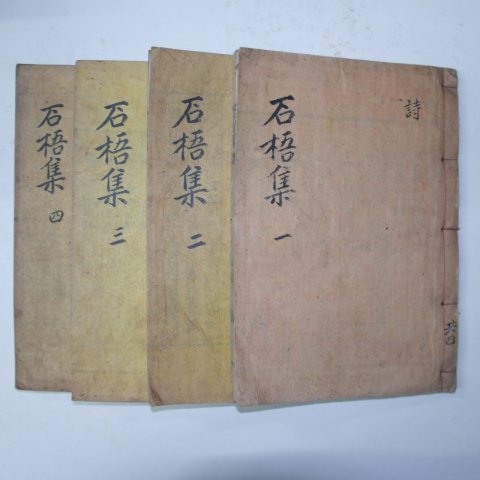 石梧集 一
詩
共四
石梧集 二
石梧集 三
石梧集 四